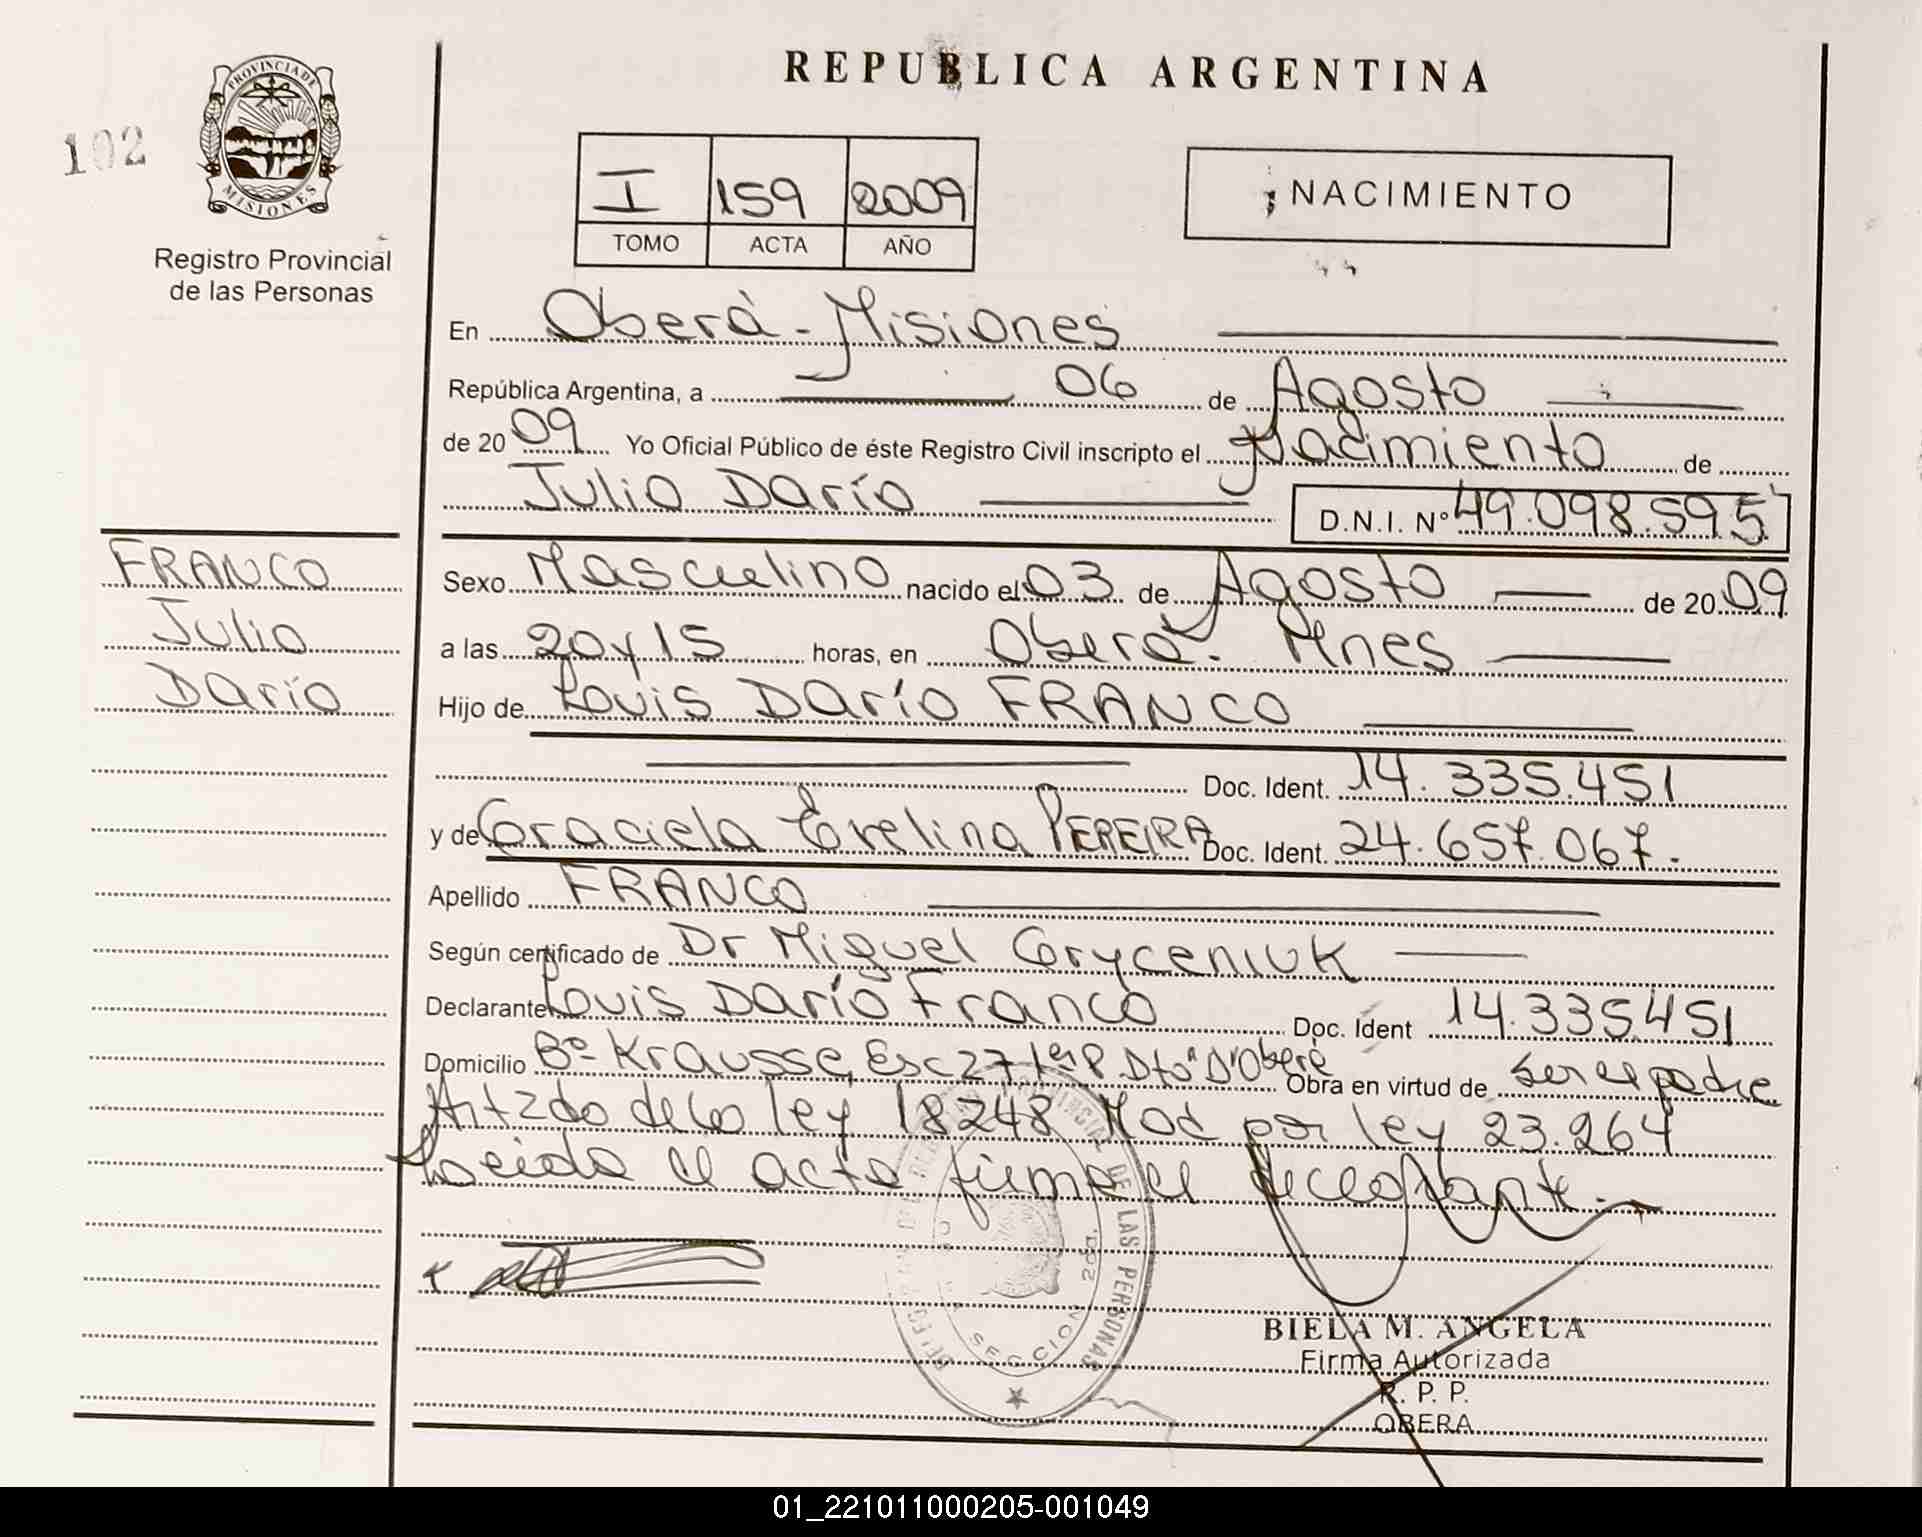 REPUBLICA ARGENTINA
102
PROVINCIA DE
MISIONES
Registro Provincial
de las Personas
I 159 2009
TOMO ACTA AÑO
NACIMIENTO
En Oberà - Misiones
República Argentina, a 06 de Agosto
de 2009 Yo Oficial Público de éste Registro Civil inscripto el Nacimiento de
Julio Darío D.N.I. Nº 49.098.595
FRANCO
Julio
Darío
Sexo Masculino nacido el 03 de Agosto de 2009
a las 20 y 15 horas, en Oberá. Mnes
Hijo de Louis Darío FRANCO
Doc. Ident. 14.335.451
y de Graciela Evelina PEREIRA Doc. Ident. 24.657.067.
Apellido FRANCO
Según certificado de Dr Miguel Coryceniuk
Declarante Louis Darío Franco Doc. Ident 14.335.451
Domicilio Bº Krausse, Esc 27 D'Oberá Obra en virtud de ser el padre
Art 2do de la ley 18248 Mod por ley 23.264
Leida el acta firma el declarante.
PROVINCIAL DE LAS PERSONAS
SECCION 2da.
BIELA M. ANGELA
Firma Autorizada
R. P. P.
OBERA
01_221011000205-001049